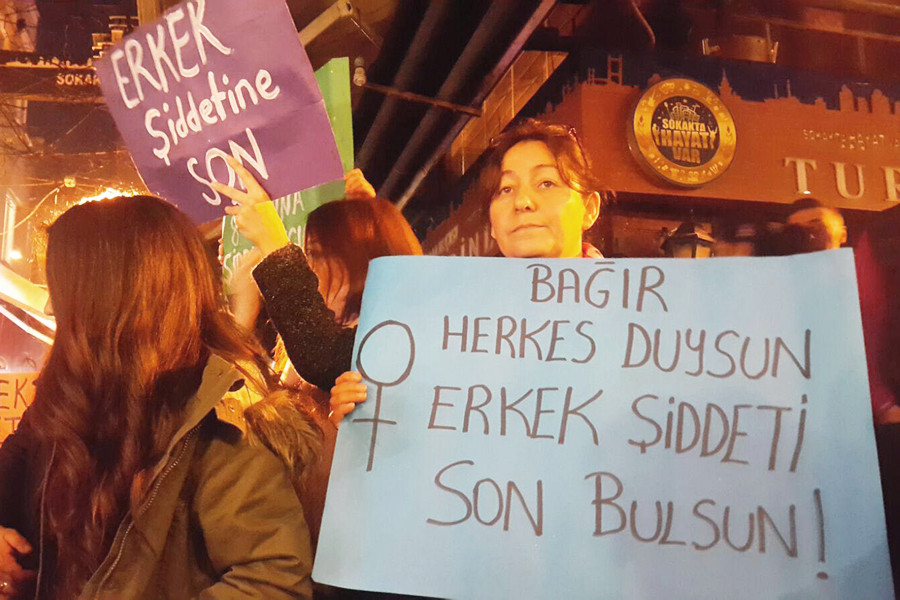 ERKEK
Şiddetine
SON
SOKAK
SOKAKTA
HAYAT
VAR
TUR
BAĞIR
HERKES DUYSUN
ERKEK ŞİDDETİ
SON BULSUN!